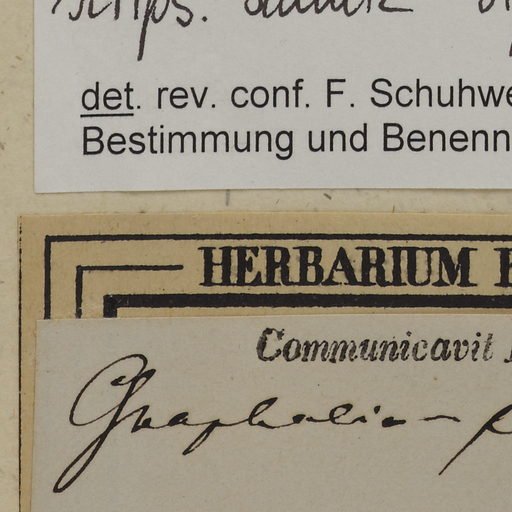 det. rev. conf. F. Schuhwe
Bestimmung und Benenn
HERBARIUM
Communicavit
Gnaphalium